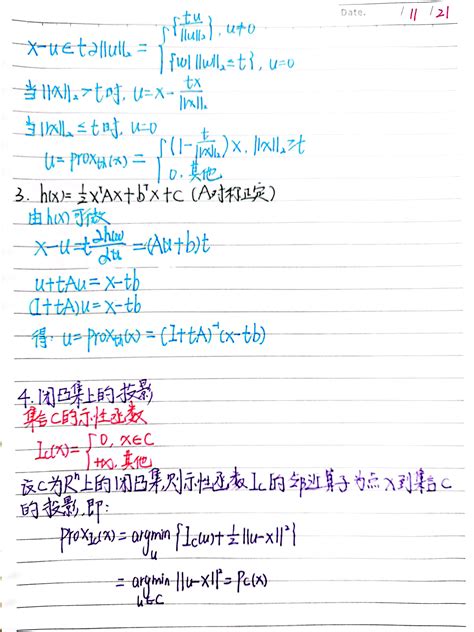 Date. / 11 / 21
x-u∈t∂||u||₂ = { {tu/||u||₂}, u≠0
{w| ||w||₂≤t}, u=0
当||x||₂>t时, u=x-tx/||x||₂
当||x||₂≤t时, u=0
u=prox_th(x)= { (1-t/||x||₂)x, ||x||₂≥t
0, 其他
3. h(x)=½xᵀAx+bᵀx+c (A对称正定)
由h(x)可微
x-u=t∂h(u)/∂u=(Au+b)t
u+tAu=x-tb
(I+tA)u=x-tb
得: u=prox_th(x)=(I+tA)⁻¹(x-tb)
4. 闭凸集上的投影
集合C的示性函数
I_C(x)= { 0, x∈C
+∞, 其他
设C为Rⁿ上的闭凸集,则示性函数I_C的邻近算子为点x到集合C
的投影,即:
prox_{I_C}(x)=argmin_u {I_C(u)+½||u-x||²}
=argmin_{u∈C} ||u-x||²=P_C(x)